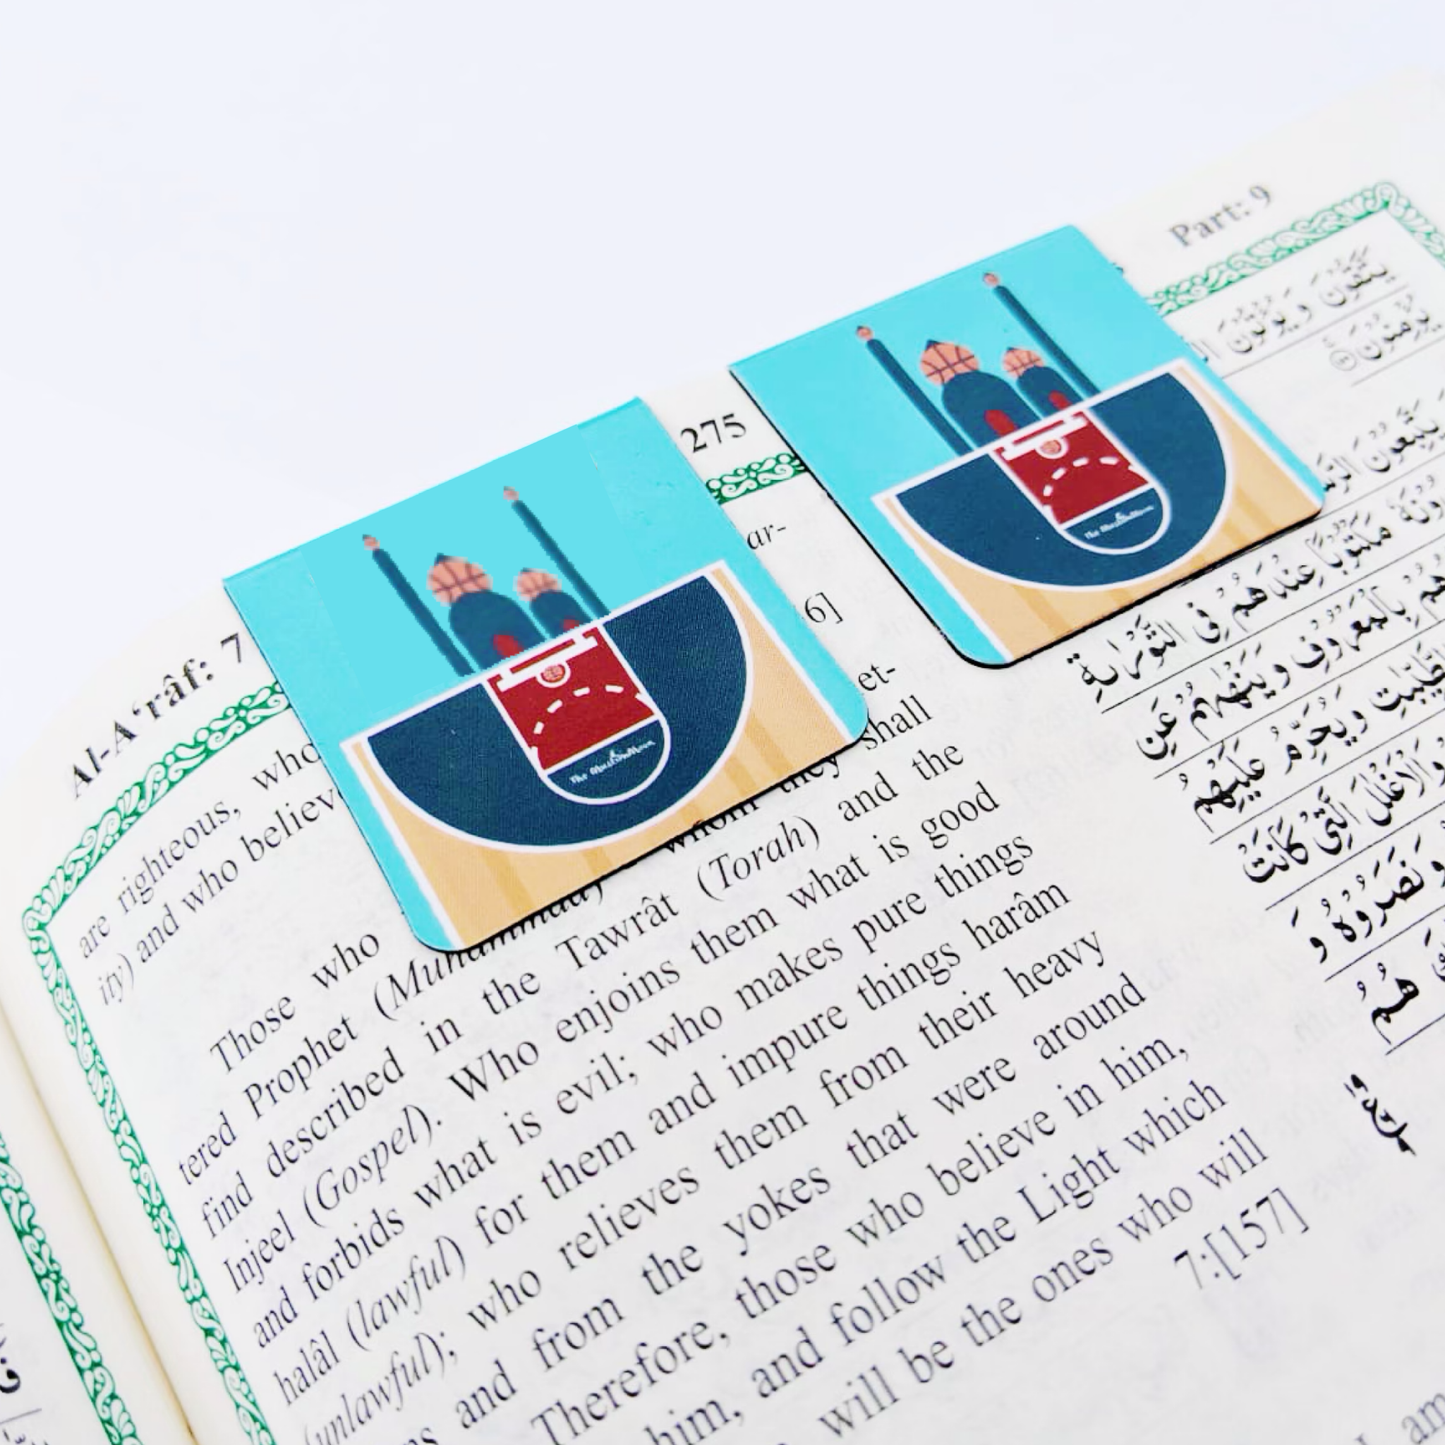 Al-A'râf: 7
275
Part: 9
are righteous, who
ar-
ity) and who believ
6]
Those who
et-
tered Prophet (Muhammad) whom they shall
find described in the Tawrât (Torah) and the
Injeel (Gospel). Who enjoins them what is good
and forbids what is evil; who makes pure things
halâl (lawful) for them and impure things harâm
(unlawful); who relieves them from their heavy
and from the yokes that were around
Therefore, those who believe in him,
him, and follow the Light which
will be the ones who will
7:[157]
am
يَتَّقُونَ وَيُؤْتُونَ
يُؤْمِنُونَ
يَتَّبِعُونَ
مَكْتُوبًا عِندَهُمْ فِي التَّوْرَاةِ
بِالْمَعْرُوفِ وَيَنْهَاهُمْ عَنِ
الطَّيِّبَاتِ وَيُحَرِّمُ عَلَيْهِمُ
وَالْأَغْلَالَ الَّتِي كَانَتْ
وَنَصَرُوهُ وَ
هُمُ
The MuslimMoon
The MuslimMoon